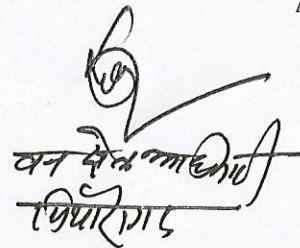 वन क्षेत्राधिकारी
पिथौरागढ़